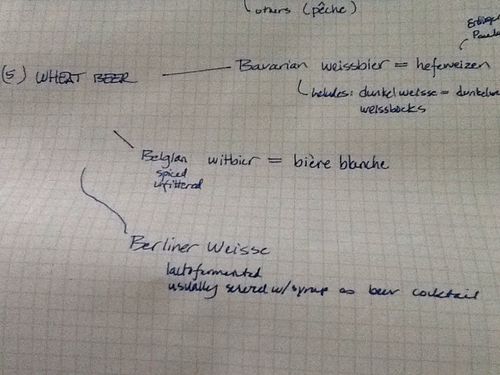 others (pêche)
(5) WHEAT BEER
Bavarian weissbier = hefeweizen
includes: dunkelweisse =
weissbocks
Belgian witbier = bière blanche
spiced
unfiltered
Berliner Weisse
lactofermented
usually served w/syrup as beer cocktail